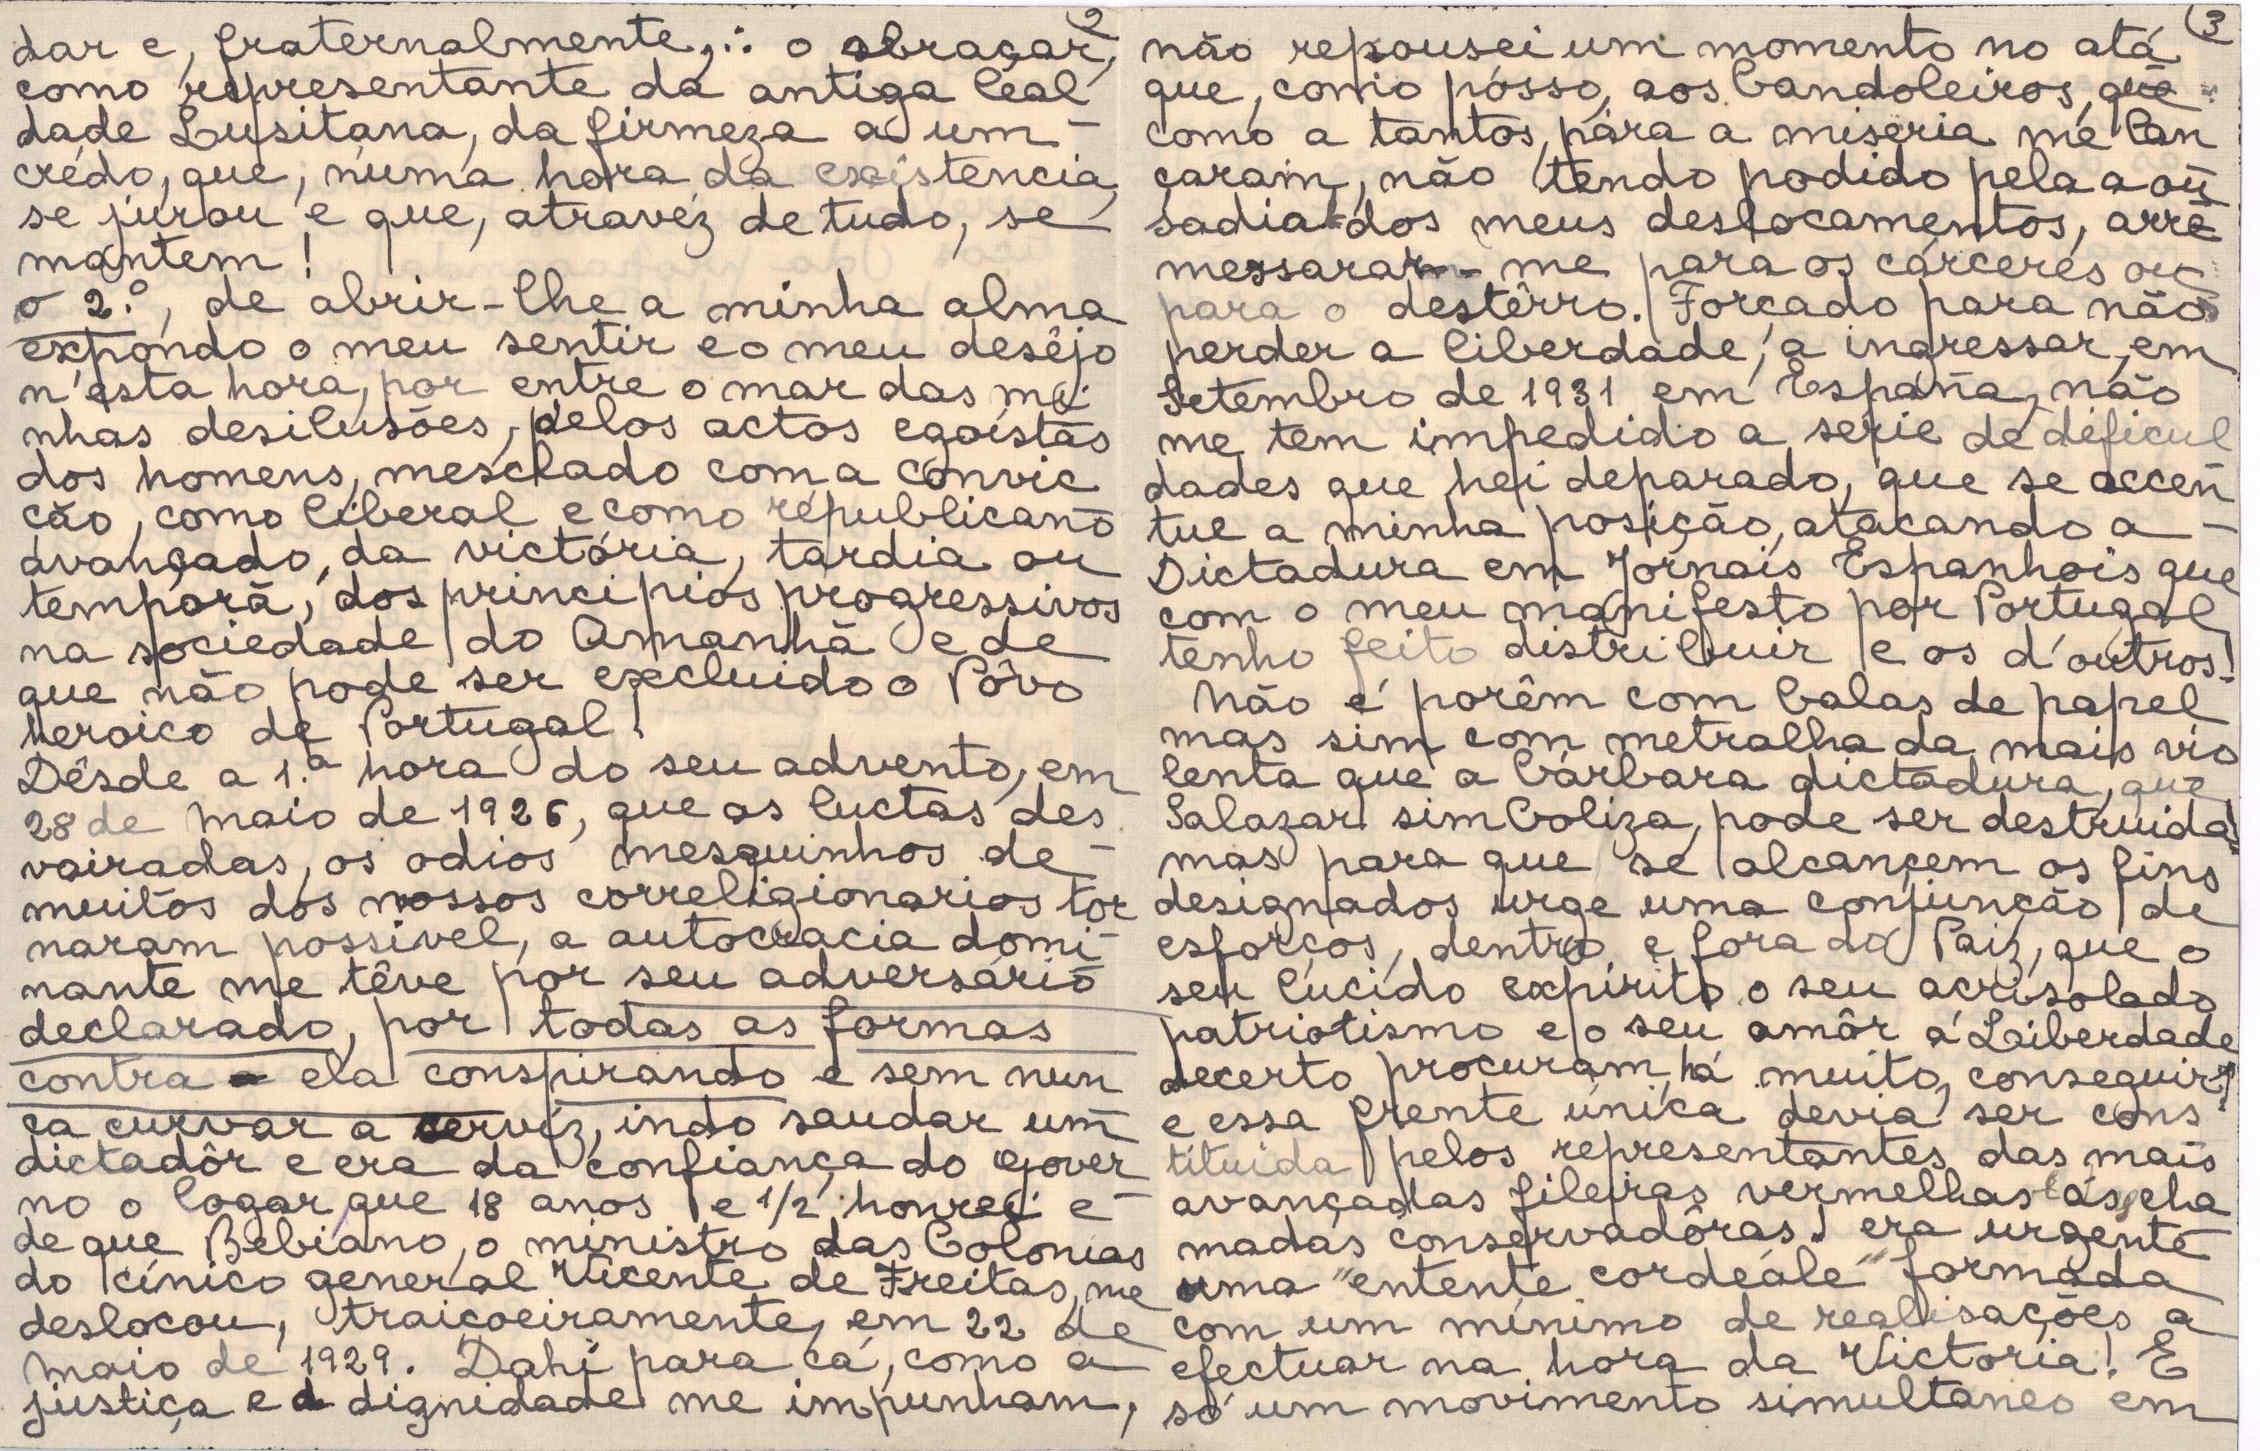 2
dar e, fraternalmente, ∴ o abraçar,
como representante da antiga leal
dade Lusitana, da firmeza a um -
crédo, que, numa hora da existencia,
se jurou e que, atravéz de tudo, se
mantem!
o 2.º, de abrir-lhe a minha alma
expondo o meu sentir e o meu desêjo
n'esta hora, por entre o mar das mi
nhas desilusões, pelos actos egoístas
dos homens, mesclado com a convic
cão, como liberal e como républicano
avançado, da victória, tardia ou
temporã, dos principios progressivos
na sociedade do Amanhã e de
que não pode ser excluido o Pôvo
heroico de Portugal!
Dêsde a 1.ª hora do seu advento, em
28 de Maio de 1926, que as luctas des
vairadas, os odios mesquinhos de -
muitos dos nossos correligionarios tor
naram possivel, a autocracia domi-
nante me têve por seu adversário
declarado, por todas as formas
contra ela conspirando e sem nun
ca curvar a cerviz, indo saudar um
dictadôr e era da confiança do Gover
no o logar que 18 anos e 1/2 honrei e -
de que Bebiano, o ministro das Colonias
do cínico general Vicente de Freitas, me
deslocou, traiçoeiramente, em 22 de
Maio de 1929. Dahi para cá, como a
justiça e a dignidade me impunham,
3
não repousei um momento no atá
que, como pósso, aos bandoleiros, que
como a tantos, pára a miseria me lan
çaram, não tendo podido pela a ou
sadia dos meus deslocamentos, arre
messaram-me para os cárceres ou
para o destêrro. Forçado para não
perder a liberdade, a ingressar, em
Setembro de 1931 em España, não
me tem impedido a série de dificul
dades que hei deparado, que se accen
tue a minha posição, atacando a -
Dictadura em Jornais Espanhois que
com o meu manifesto por Portugal
tenho feito distribuir e os d'outros!
Não é porêm com balas de papel
mas sim com metralha da mais vio
lenta que a bárbara dictadura, que
Salazar simboliza, pode ser destruida!
mas para que se alcançem os fins
designados urge uma conjunção de
esforços, dentro e fora do Paiz, que o
seu lúcido expirito o seu acrisolado
patriotismo e o seu amôr á Liberdade
decerto procuram, há muito, conseguir!
e essa frente única devia ser cons
tituida pelos representantes das mais
avançadas fileiras vermelhas ás cha
madas conservadôras! era urgente
uma "entente cordeále" formada
com um mínimo de realisações a
efectuar na hora da Victoria! E
só um movimento simultaneo em